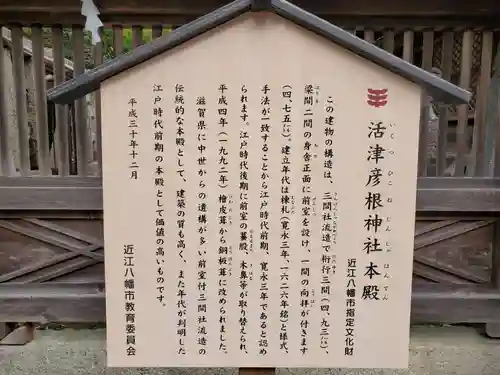 活津彦根神社本殿
いくつひこねじんじゃほんでん
近江八幡市指定文化財
この建物の構造は、三間社流造で桁行三間（四、九三㍍）、
梁間二間の身舎正面に前室を設け、一間の向拝が付きます
（四、七五㍍）。建立年代は棟札（寛永三年、一六二六年銘）と様式、
手法が一致することから江戸時代前期、寛永三年であると認め
られます。江戸時代後期に前室の蟇股、木鼻等が取り替えられ、
平成四年（一九九二年）檜皮葺から銅板葺に改められました。
滋賀県に中世からの遺構が多い前室付三間社流造の
伝統的な本殿として、建築の質も高く、また年代が判明した
江戸時代前期の本殿として価値の高いものです。
平成三十年十二月
近江八幡市教育委員会